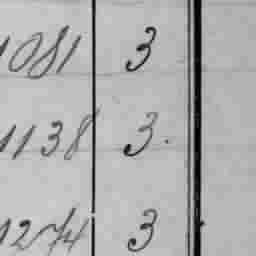 1081 3
1138 3.
1274 3